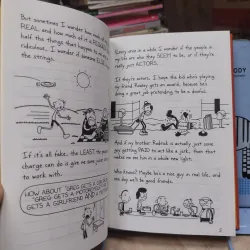 But sometimes I wonder how
REAL and how much of it
half the things that happen to
ridiculous, I wonder if someone
the strings.
If it's all fake, the LEAST the
charge can do is give me some
to work with.
HOW ABOUT "GREG GETS A
"GREG GETS A
GETS A GIRLFRIEND AND
Every once in a while I wonder if the people in
my life are who they SEEM to be, or if they're
really just ACTORS.
If they're actors, I hope the kid who's playing
my friend Rowley gets an award, because he's doing
a great job pretending to be a doofus.
And if my brother Rodrick is actually just some
guy getting PAID to act like a jerk, then that
makes me see him in a whole new light.
Who knows? Maybe he's a nice guy in real life, and
one day we'll be good friends.